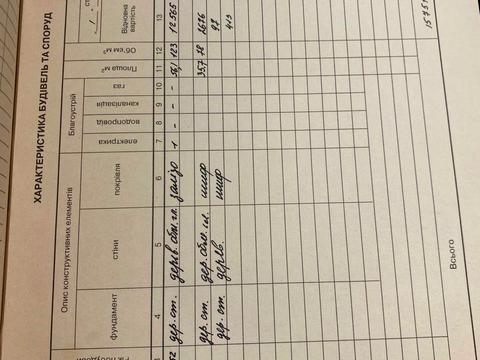 ХАРАКТЕРИСТИКА БУДІВЕЛЬ ТА СПОРУД
Опис конструктивних елементів
Благоустрій
фундамент
стіни
покрівля
електрика
водопровід
каналізація
газ
Площа м²
Об'єм м³
Відновна вартість
4 5 6 7 8 9 10 11 12 13
дер. ст. дерев. обм. гл. залізо 1 - - - 56,1 123 12565
дер. ст. дер. обм. гл. шиф 35,7 78 2676
дер. ст. дерев. шиф 97
413
Всього